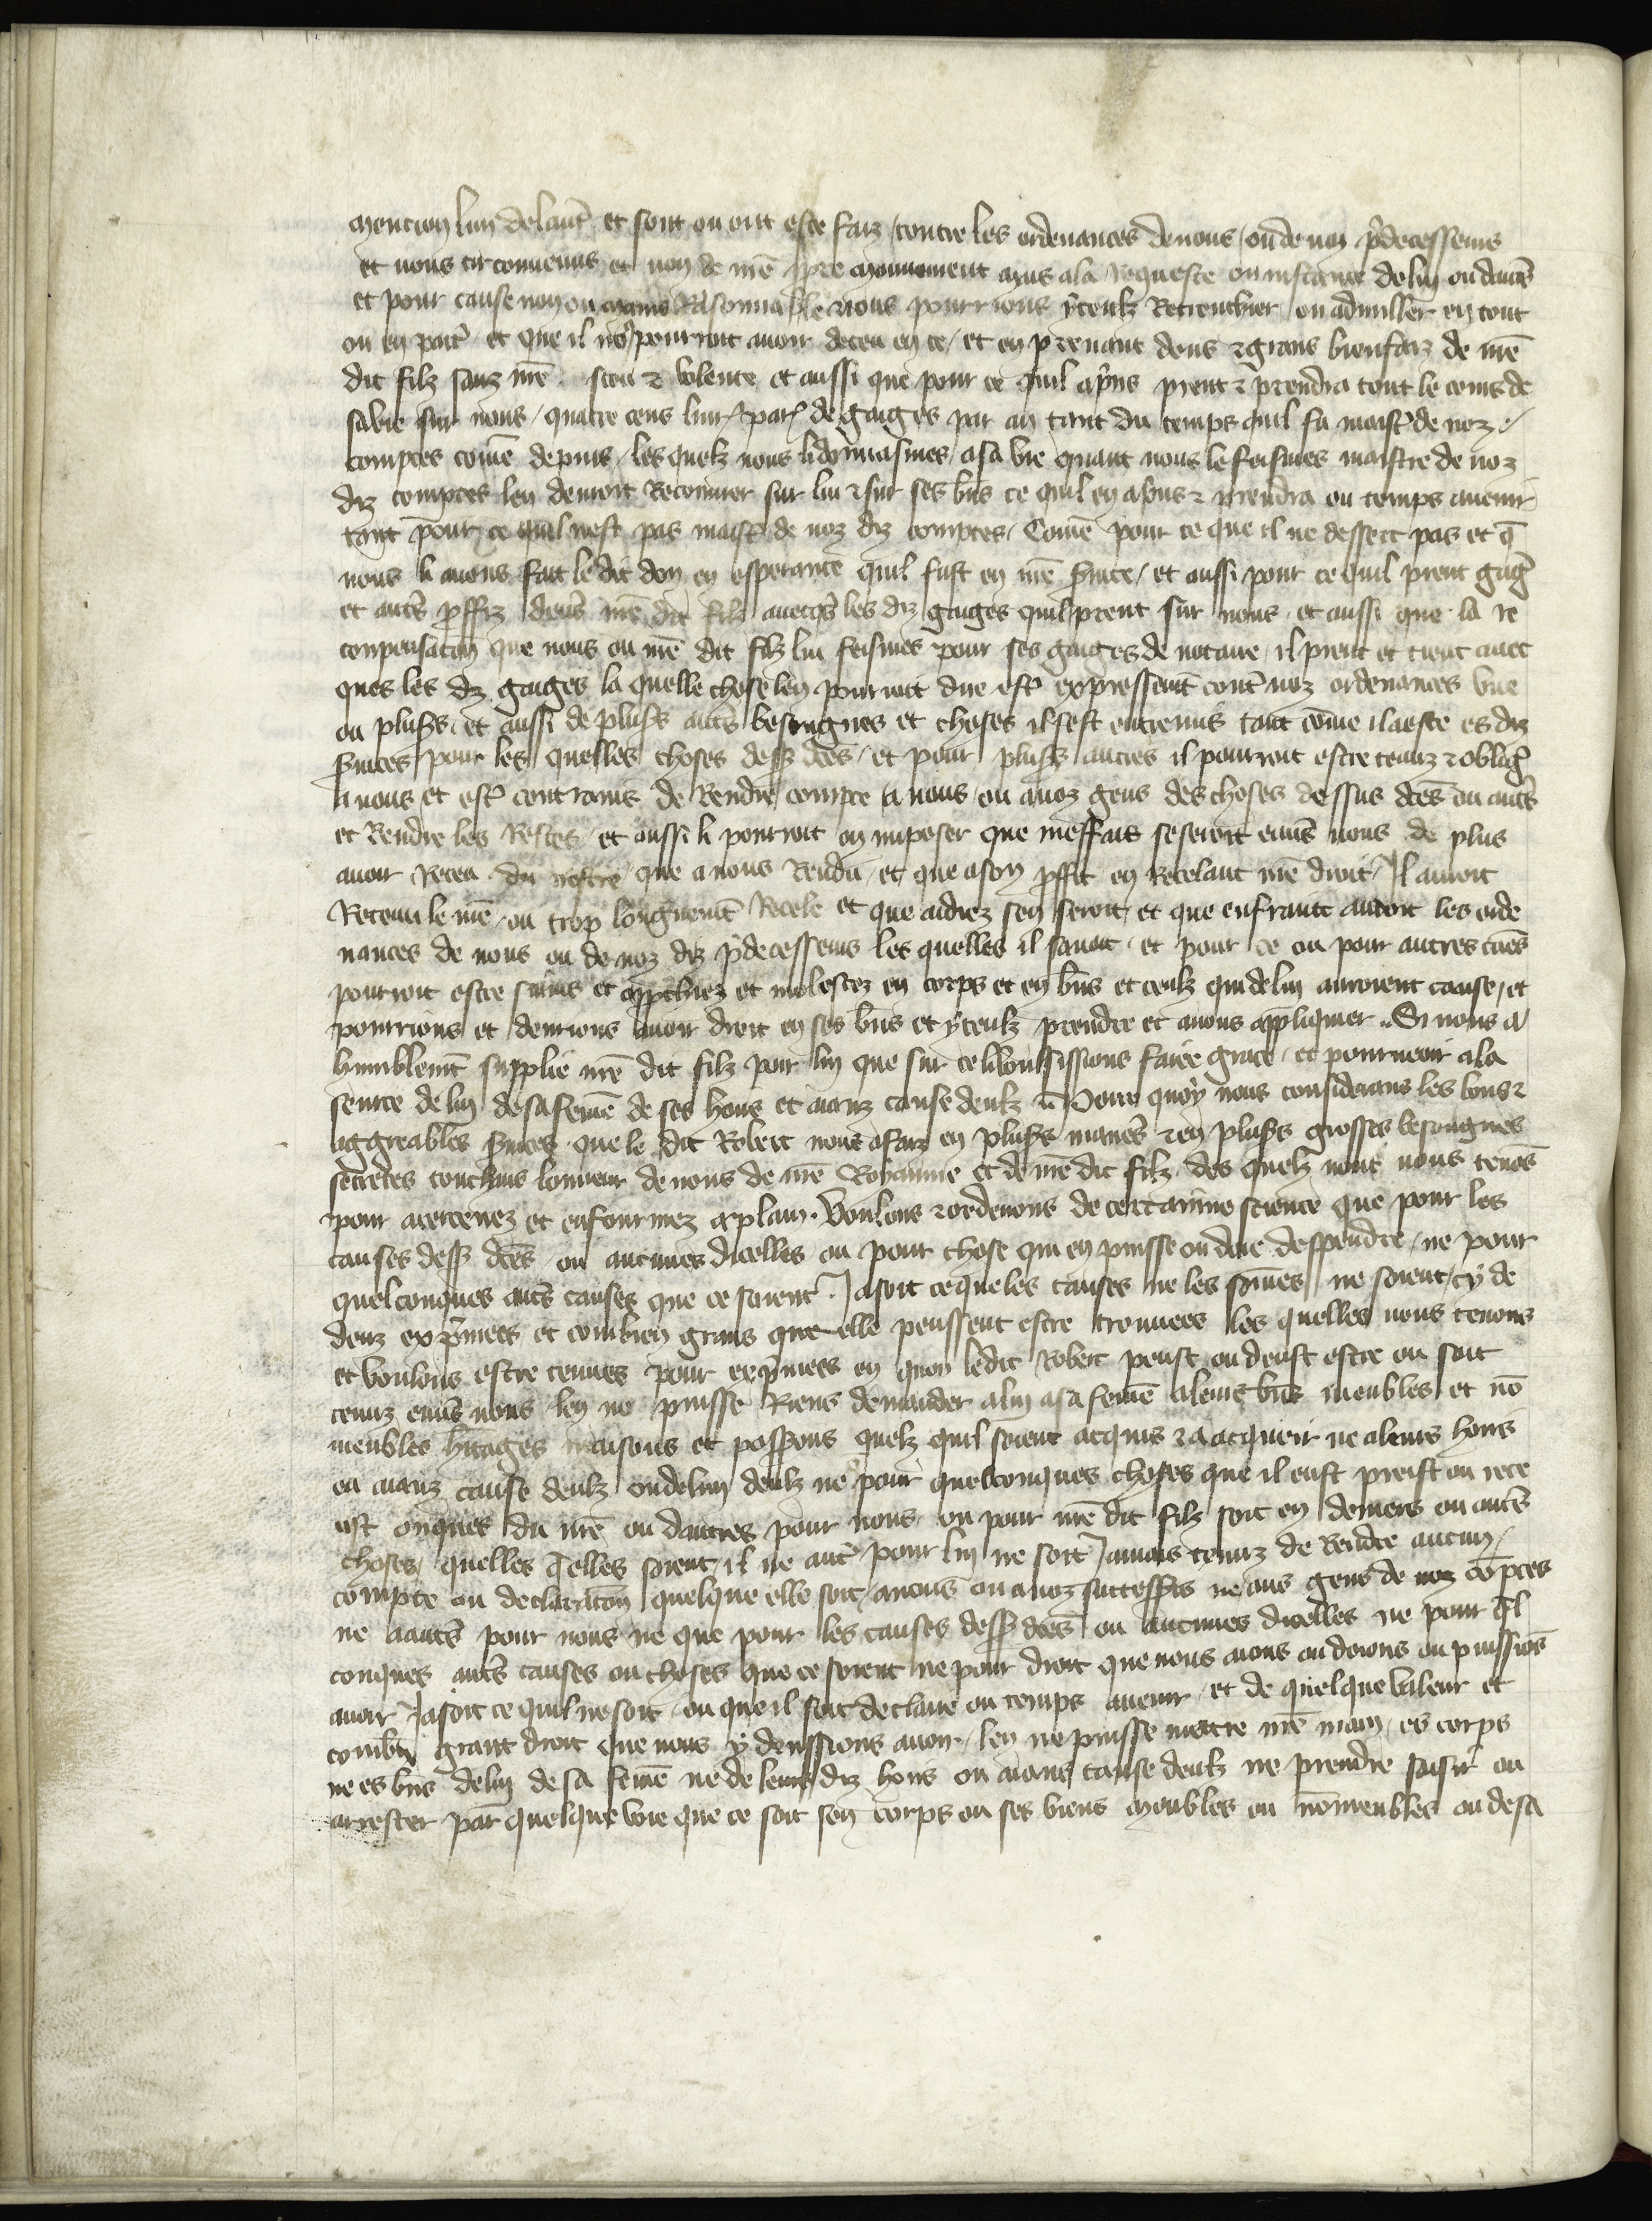 mencion lun de lautre et sont ou ont este faiz contre les ordenances de nous ou de noz predecesseurs
et nous circonvenus et non de nre ppre mouvement mus a la requeste ou instance de luy ou dautres
et pour cause non ou moins Raisonnable nous pourrions yceulz Retrenchier ou adnuller en tout
ou en partie et que il nos pourroit avoir deceu en ce et en prenant dons et grans bienfaiz de nre
dit filz sanz nre sceu et volente et aussi que pour ce quil a pris prent et prendra tout le cours de
sa vie sur nous quatre cens livres par. de gaiges par an tant du temps quil fu maistre de noz
comptes come depuis les quelz nous li donnasmes a sa vie quant nous le feismes maistre de noz
diz comptes len devroit Recouvrer sur lui et sur ses biens ce quil en a pris et prendra ou temps avenir
tant pour ce quil nest pas maistre de noz diz comptes Come pour ce que il ne dessert pas et q
nous li avons fait le dit don en esperance quil fust en nre service et aussi pour ce quil prent gaiges
et autres prffiz devers nre dit filz avecqs les diz gaiges quil prent sur nous et aussi que la re
conpensacion que nous ou nre dit filz lui feismes pour ses gaiges de notaire il prent et tient avec
ques les diz gaiges la quelle chose len pourroit dire estre expressement contre noz ordenances une
ou plusrs et aussi de plusrs autres besongnes et choses il sest entremis tant come il a este es diz
services pour les quelles choses dess dces et pour plusrs autres il pourroit estre tenuz et obligie
a nous et estre contrains de Rendre compte a nous ou a noz gens des choses dessus dces ou autres
et Rendre les Restes et aussi li pourroit on imposer que meffais se seroit envers nous de plus
avoir Receu du nostre que a nous Rendu et que a son prffit en Recelant nre droit Il auroit
Retenu le nre ou trop longuement Recele et que aidiez sen seroit et que enfraint auroit les orde
nances de nous ou de noz diz predecesseurs les quelles il savoit et pour ce ou pour autres causes
pourroit estre suivis et approchiez et molestez en corps et en biens et ceulz qui de luy auroient cause et
pourrions et devrions avoir droit en ses biens et yceulz prendre et a nous appliquer Si nous a
humblement supplie nre dit filz pour luy que sur ce li voulsissions faire grace et pourveoir a la
seurte de luy de sa feme de ses hoirs et aianz cause deulz Pour quoy nous considerans les bons et
aggreables services que le dit Robert nous a faiz en plusrs manieres et en plusrs grosses besongnes
secretes touchans lonneur de nous de nre Royaume et de nre dit filz des quelz nous nous tenons
pour acertenez et enfourmez a plain Voulons et ordenons de certainne science que pour les
causes dess dces ou aucunes dicelles ou pour chose qui en puisse ou doie despendre ne pour
quelconques autres causes que ce soient Ja soit ce que les causes ne les somes ne soient cy de
denz exprimees et combien grans que elle peussent estre trouvees les quelles nous tenons
et voulons estre tenues pour exprimees en quoy le dit Robert peust ou deust estre ou soit
tenuz envers nous len ne puisse Riens demander a luy a sa feme a leurs biens meubles et no
meubles heritages maisons et possessions quelz quil soient acquis et a acquerir ne a leurs hoirs
ou aianz cause deulz ou de lun deulz ne pour quelconques choses que il eust preist ou rece
ust onques du nre ou dautres pour nous ou pour nre dit filz soit en deniers ou autres
choses quelles qelles soient il ne autre pour luy ne soit Jamais tenuz de Rendre aucun
compte ou declaracion quelque elle soit a nous ou a noz successrs ne aus gens de noz comptes
ne a autres pour nous ne que pour les causes dess dces ou aucunes dicelles ne pour ql
conques autres causes ou choses que ce soient ne pour droit que nous aions ou doions ou puissios
avoir Ja soit ce quil ne soit ou que il soit declaire ou temps avenir et de quelque valeur et
combien grant droit que nous y deussions avoir len ne puisse mettre nre main es corps
ne es biens de luy de sa feme ne de leurs diz hoirs ou aians cause deulz ne prendre saisir ou
arrester par quelque voie que ce soit son corps ou ses biens meubles ou nomeubles ou de sa